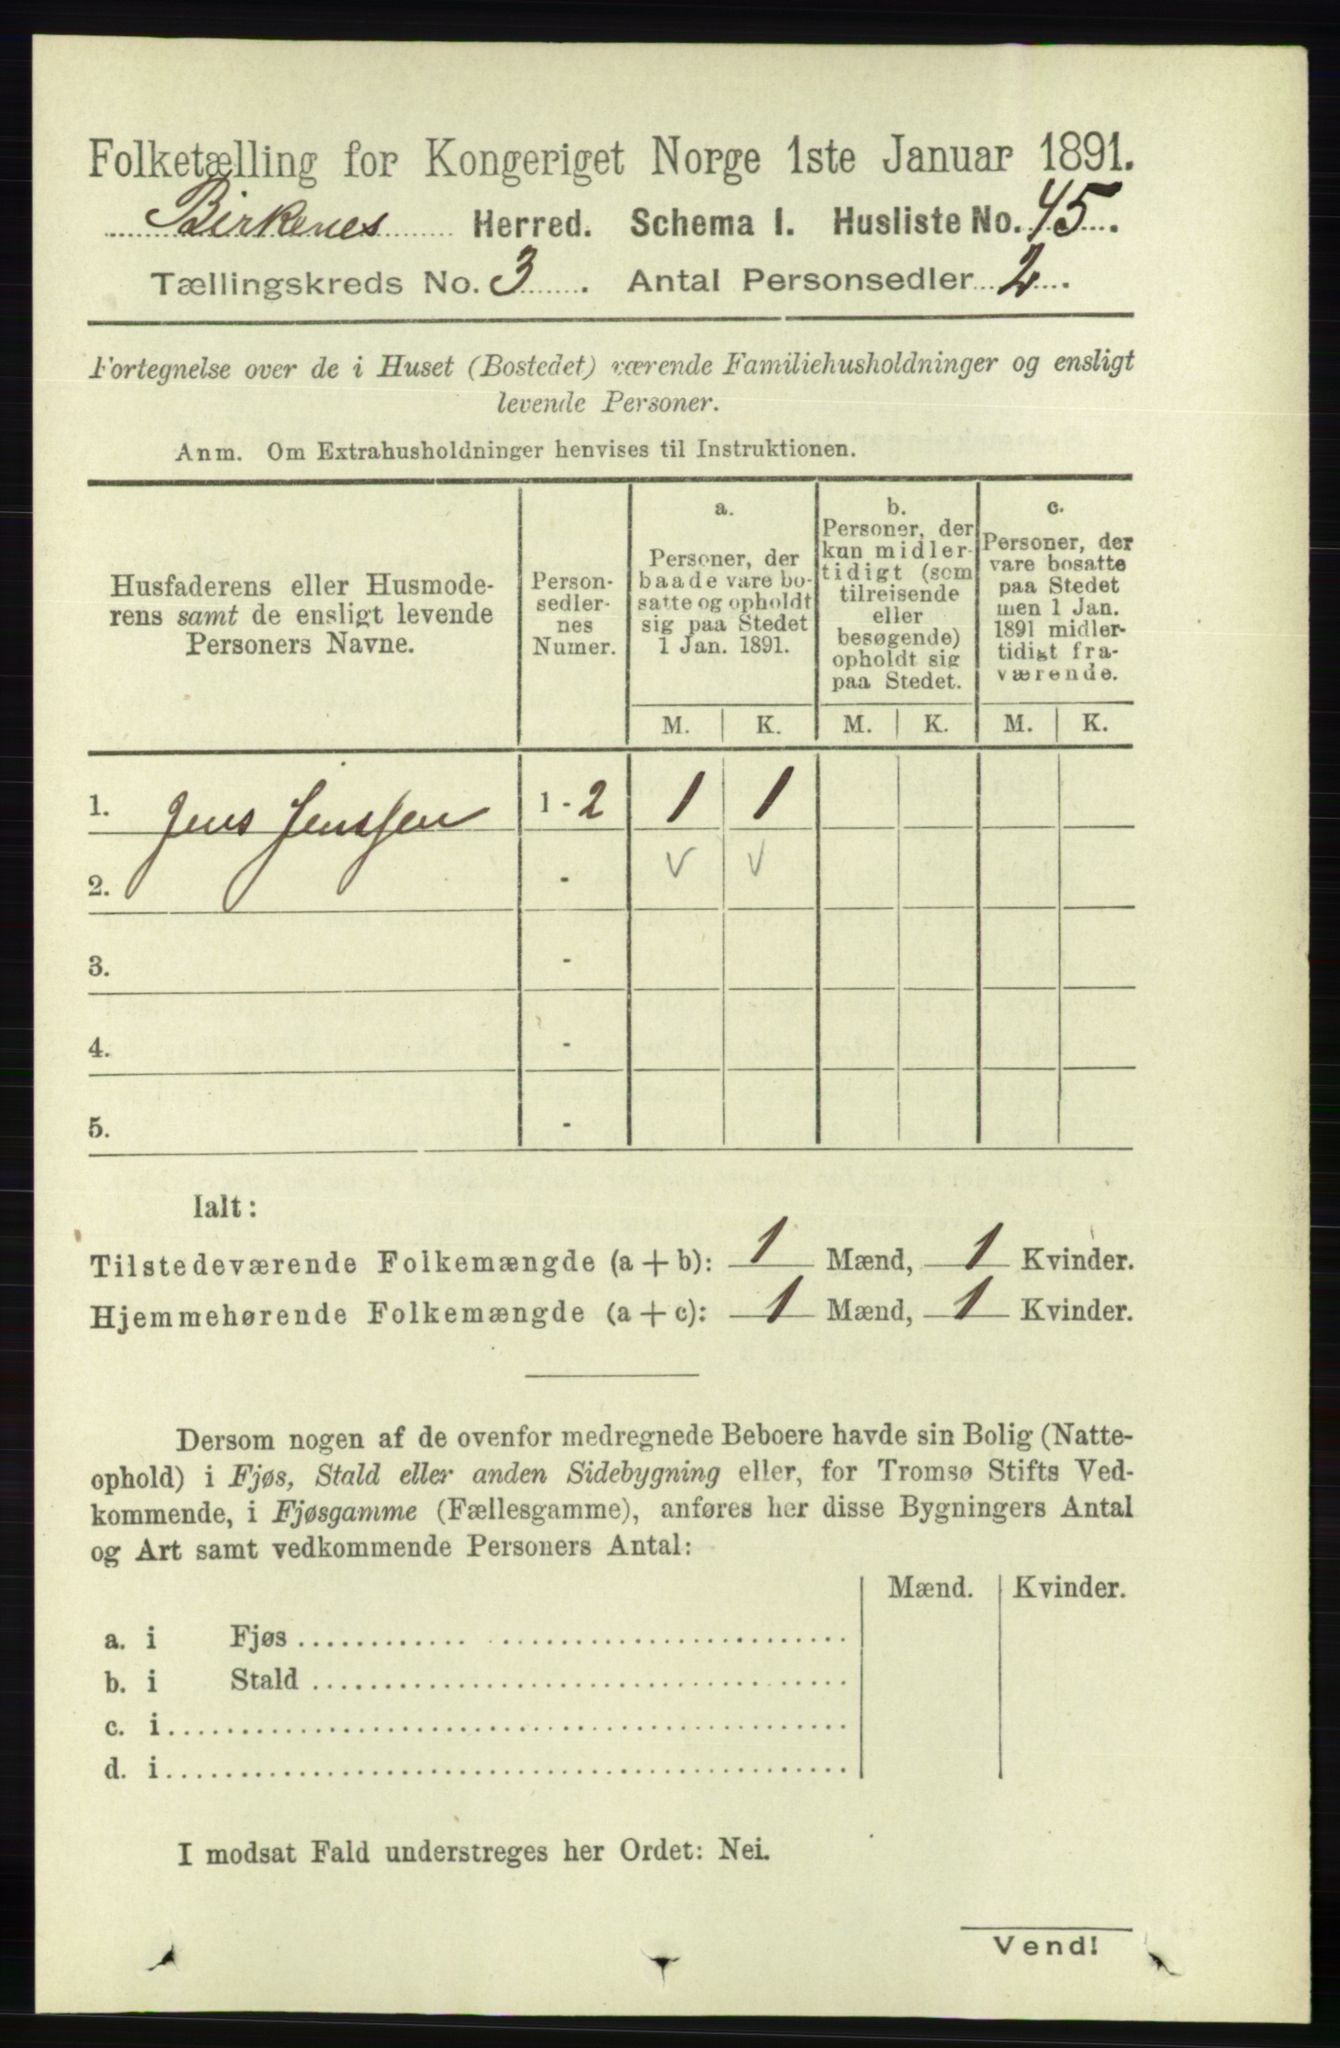 Folketælling for Kongeriget Norge 1ste Januar 1891.
Birkenes Herred. Schema I. Husliste No. 45.
Tællingskreds No. 3. Antal Personsedler 2.
Fortegnelse over de i Huset (Bostedet) værende Familiehusholdninger og ensligt
levende Personer.
Anm. Om Extrahusholdninger henvises til Instruktionen.
Husfaderens eller Husmode-
rens samt de ensligt levende
Personers Navne.
Person-
sedler-
nes
Numer.
a.
Personer, der
baade vare bo-
satte og opholdt
sig paa Stedet
1 Jan. 1891.
b.
Personer, der
kun midler-
tidigt (som
tilreisende
eller
besøgende)
opholdt sig
paa Stedet.
c.
Personer, der
vare bosatte
paa Stedet
men 1 Jan.
1891 midler-
tidigt fra-
værende.
M. K. M. K. M. K.
1. Jens Jenssen 1 - 2 1 1
2. - v v
3. -
4. -
5. -
Ialt:
Tilstedeværende Folkemængde (a + b): 1 Mænd, 1 Kvinder.
Hjemmehørende Folkemængde (a + c): 1 Mænd, 1 Kvinder.
Dersom nogen af de ovenfor medregnede Beboere havde sin Bolig (Natte-
ophold) i Fjøs, Stald eller anden Sidebygning eller, for Tromsø Stifts Ved-
kommende, i Fjøsgamme (Fællesgamme), anføres her disse Bygningers Antal
og Art samt vedkommende Personers Antal:
Mænd. Kvinder.
a. i Fjøs
b. i Stald
c. i
d. i
I modsat Fald understreges her Ordet: Nei.
Vend!